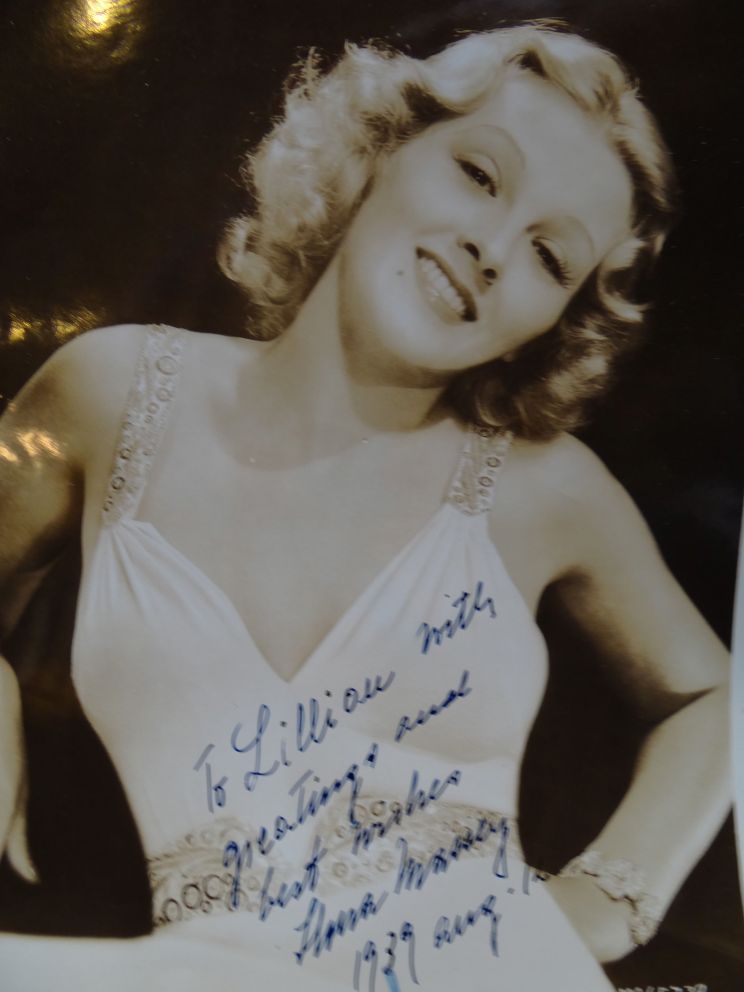 To Lillian with
greatings and
best wishes
Ilona Massey
1939 aug.